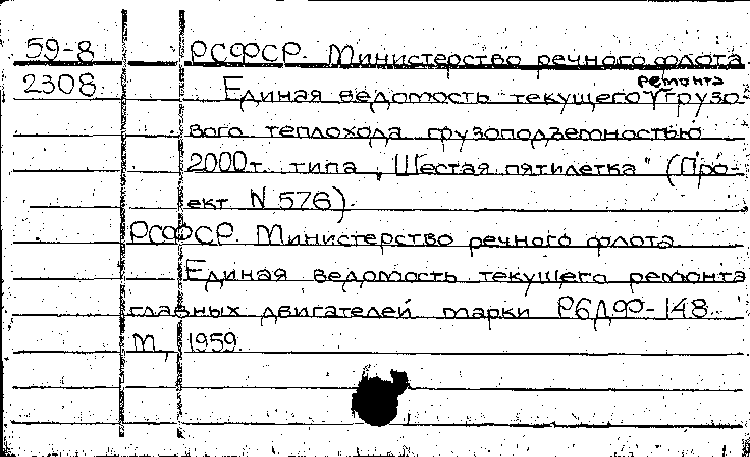 59-8 РСФСР. Министерство речного флота.
2308 Единая ведомость текущего ремонта грузо-
вого теплохода грузоподъемностью
2000т. типа „Шестая пятилетка" (Про-
ект N 576).
РСФСР. Министерство речного флота.
Единая ведомость текущего ремонта
главных двигателей марки
М, 1959.